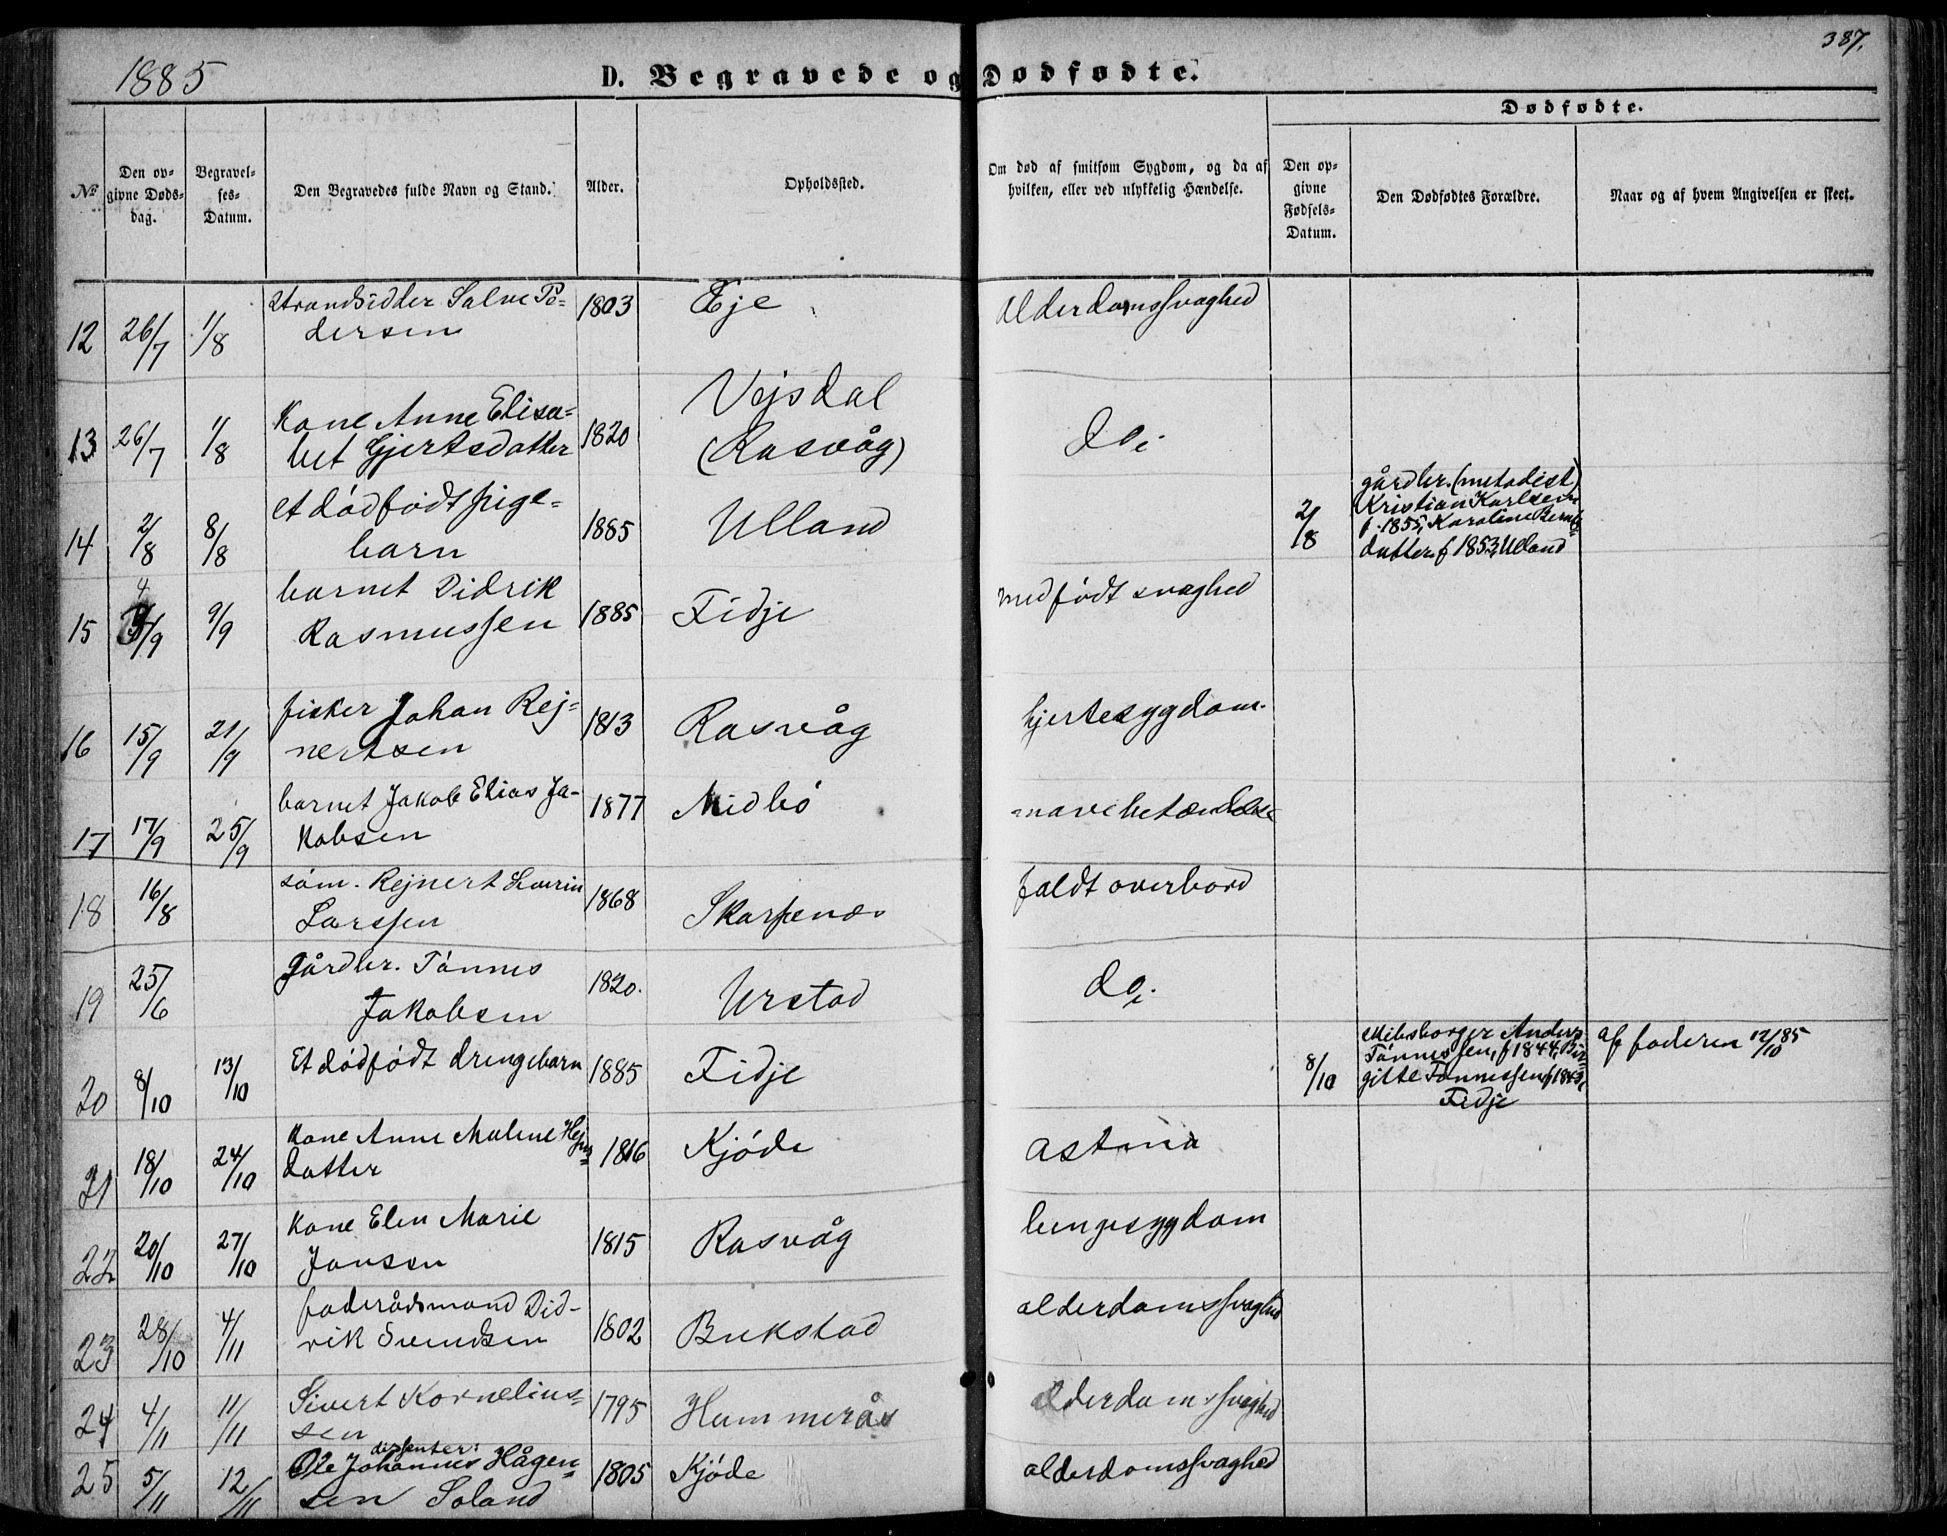 1885
D. Begravede og Dødfødte.
387.
Dødfødte.
No
Den opgivne Dødsdag.
Begravelses-Datum.
Den Begravedes fulde Navn og Stand.
Alder.
Opholdssted.
Om død af smitsom Sygdom, og da af hvilken, eller ved ulykkelig Hændelse.
Den opgivne Fødsels-Datum.
Den Dødfødtes Forældre.
Naar og af hvem Angivelsen er skeet.
12 26/7 1/8 Strandsidder Salve Pe- 1803 Eje alderdomssvaghed
dersen
13 26/7 1/8 Kone Anne Elisa- 1820 Vejsdal do.
bet Gjertsdatter (Rasvåg)
14 2/8 8/8 et dødfødt pige- 1885 Ulland 2/8 gårdbr. (metodist)
barn Kristian Karlsen
f. 1855, Karoline Bernt-
datter f 1853, Ulland
15 4/9 9/9 barnet Didrik 1885 Fidje medfødt svaghed
Rasmussen
16 15/9 21/9 fisker Johan Rej- 1813 Rasvåg hjertesygdom.
nertsen
17 17/9 25/9 barnet Jakob Elias Ja- 1877 Midbø mavebetændelse
kobsen
18 16/8 søm. Rejnert Severin 1868 Skarpenæs faldt overbord
Larssen
19 25/6 gårdbr. Tønnes 1820. Urstad do.
Jakobsen
20 8/10 13/10 Et dødfødt drengebarn 1885 Fidje 8/10 skibsborger Anders af faderen 12/10 85
Tønnessen, f 1844, Bir-
gitte Tønnessen f 1843,
Fidje
21 18/10 24/10 Kone Anne Malene 1816 Kjøde astma
datter
22 20/10 27/10 Kone Elen Marie 1815 Rasvåg lungesygdom
Jansen
23 28/10 4/11 føderådsmand Did- 1802 Bukstad alderdomssvaghed
rik Svendsen
24 4/11 11/11 Sivert Kornelius- 1795 Hummerås alderdomssvaghed
sen
dissenter:
25 5/11 12/11 Ole Johannes Hågen- 1805 Kjøde alderdomssvaghed
sen Soland